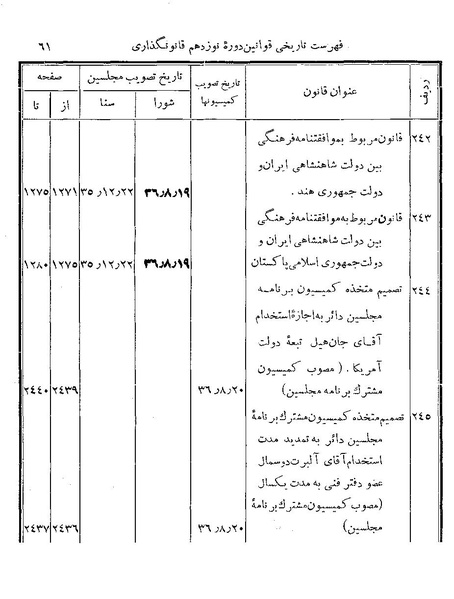 فهرست تاریخی قوانین دورهٔ نوزدهم قانونگذاری ۶۱
ردیف عنوان قانون تاریخ تصویب کمیسیونها تاریخ تصویب مجلسین صفحه
شورا سنا از تا
۲۴۲ قانون مربوط به موافقتنامه فرهنگی
بین دولت شاهنشاهی ایران و
دولت جمهوری هند . ۳۶٫۸٫۱۹ ۳۵٫۱۲٫۲۲ ۱۲۷۱ ۱۲۷۵
۲۴۳ قانون مربوط به موافقتنامه فرهنگی
بین دولت شاهنشاهی ایران و
دولت جمهوری اسلامی پاکستان ۳۶٫۸٫۱۹ ۳۵٫۱۲٫۲۲ ۱۲۷۵ ۱۲۸۰
۲۴۴ تصمیم متخذه کمیسیون برنامه
مجلسین دائر به اجازهٔ استخدام
آقای جان هیل تبعهٔ دولت
آمریکا . ( مصوب کمیسیون
مشترک برنامه مجلسین) ۳۶٫۸٫۲۰ ۲۴۳۹ ۲۴۴۰
۲۴۵ تصمیم متخذه کمیسیون مشترک برنامهٔ
مجلسین دائر به تمدید مدت
استخدام آقای آلبرت دوسمال
عضو دفتر فنی به مدت یکسال
(مصوب کمیسیون مشترک برنامهٔ
مجلسین) ۳۶٫۸٫۲۰ ۲۴۳۶ ۲۴۳۷